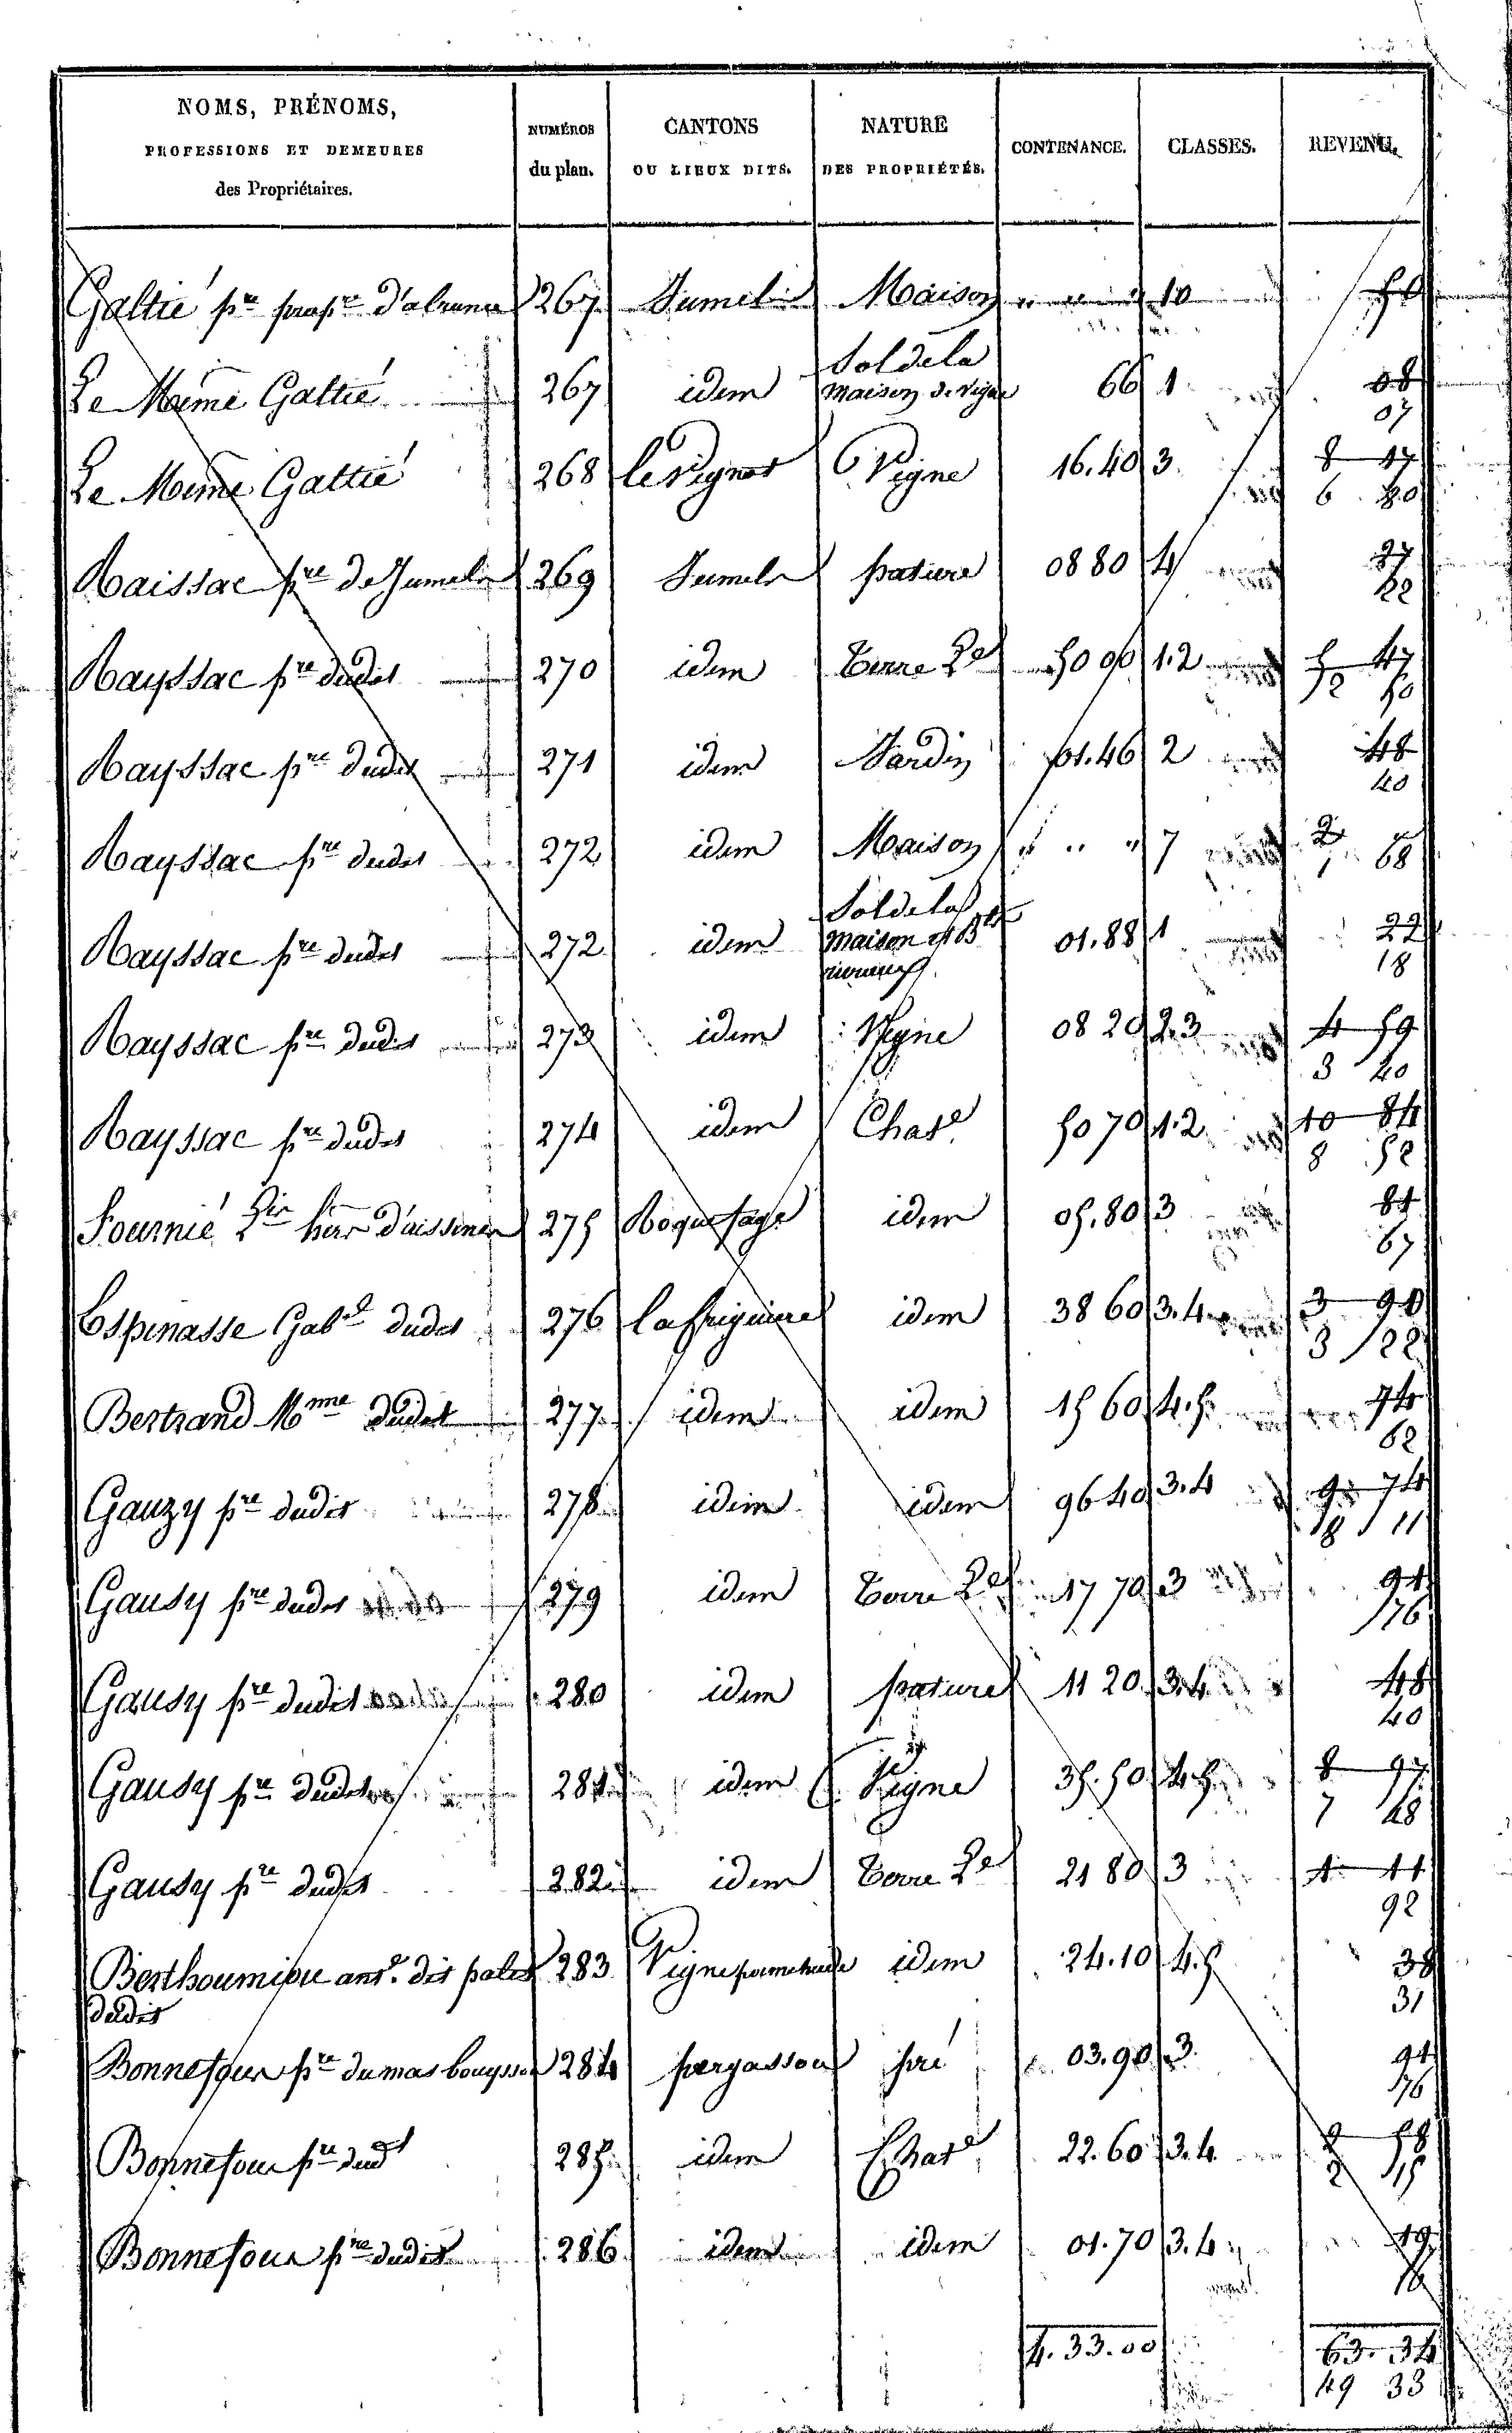 NOMS, PRÉNOMS,
PROFESSIONS ET DEMEURES
des Propriétaires.
NUMÉROS
du plan.
CANTONS
OU LIEUX DITS.
NATURE
DES PROPRIÉTÉS.
CONTENANCE.
CLASSES.
REVENU.
Galtié pre propre 267 Jumels Maison " " " 10
Le Meme Galtié 267 idem Sol de la maison de vigne 66 1 08
07
Le Meme Galtié 268 les vignes Vigne 16.40 3 8 17
6 80
Raissac pre de Jumels 269 Jumels pature 08 80 4 27
22
Rayssac pre dudit 270 idem Terre Le 50 00 1.2 47
50
Rayssac pre dudit 271 idem Jardin 01.46 2 48
40
Rayssac pre dudit 272 idem Maison " " " 7 2
1 68
Rayssac pre dudit 272 idem Sol de la maison et Bt 01.88 1 22
18
Rayssac pre dudit 273 idem Vigne 08 20 2.3 4 59
3 40
Rayssac pre dudit 274 idem Chate 50 70 1.2 10 84
8 52
Fournié hers 275 idem 05.80 3 84
67
Espinasse Gabel dudit 276 idem 38 60 3.4 3 90
3 22
Bertrand Mme dudit 277 idem idem 15 60 4.5 74
62
Gauzy pre dudit 278 idem idem 96 40 3.4 9 74
11
Gausy pre dudit 279 idem Terre Le 17 70 3 91
76
Gausy pre dudit 280 idem pature 11 20 3.4 48
40
Gausy pre dudit 281 idem Vigne 35.50 4.5 8 97
7 48
Gausy pre dudit 282 idem Terre Le 21 80 3 1 11
92
Berthoumieu 283 Vigne idem 24.10 4.5 38
dudit 31
Bonnefous pre du mas bouysson 284 pergassou pré 03.90 3 91
76
Bonnefous pre dudt 285 idem Chate 22.60 3.4 2 58
2 15
Bonnefous pre dudit 286 idem idem 01.70 3.4 19
16
4.33.00 63.34
49 33